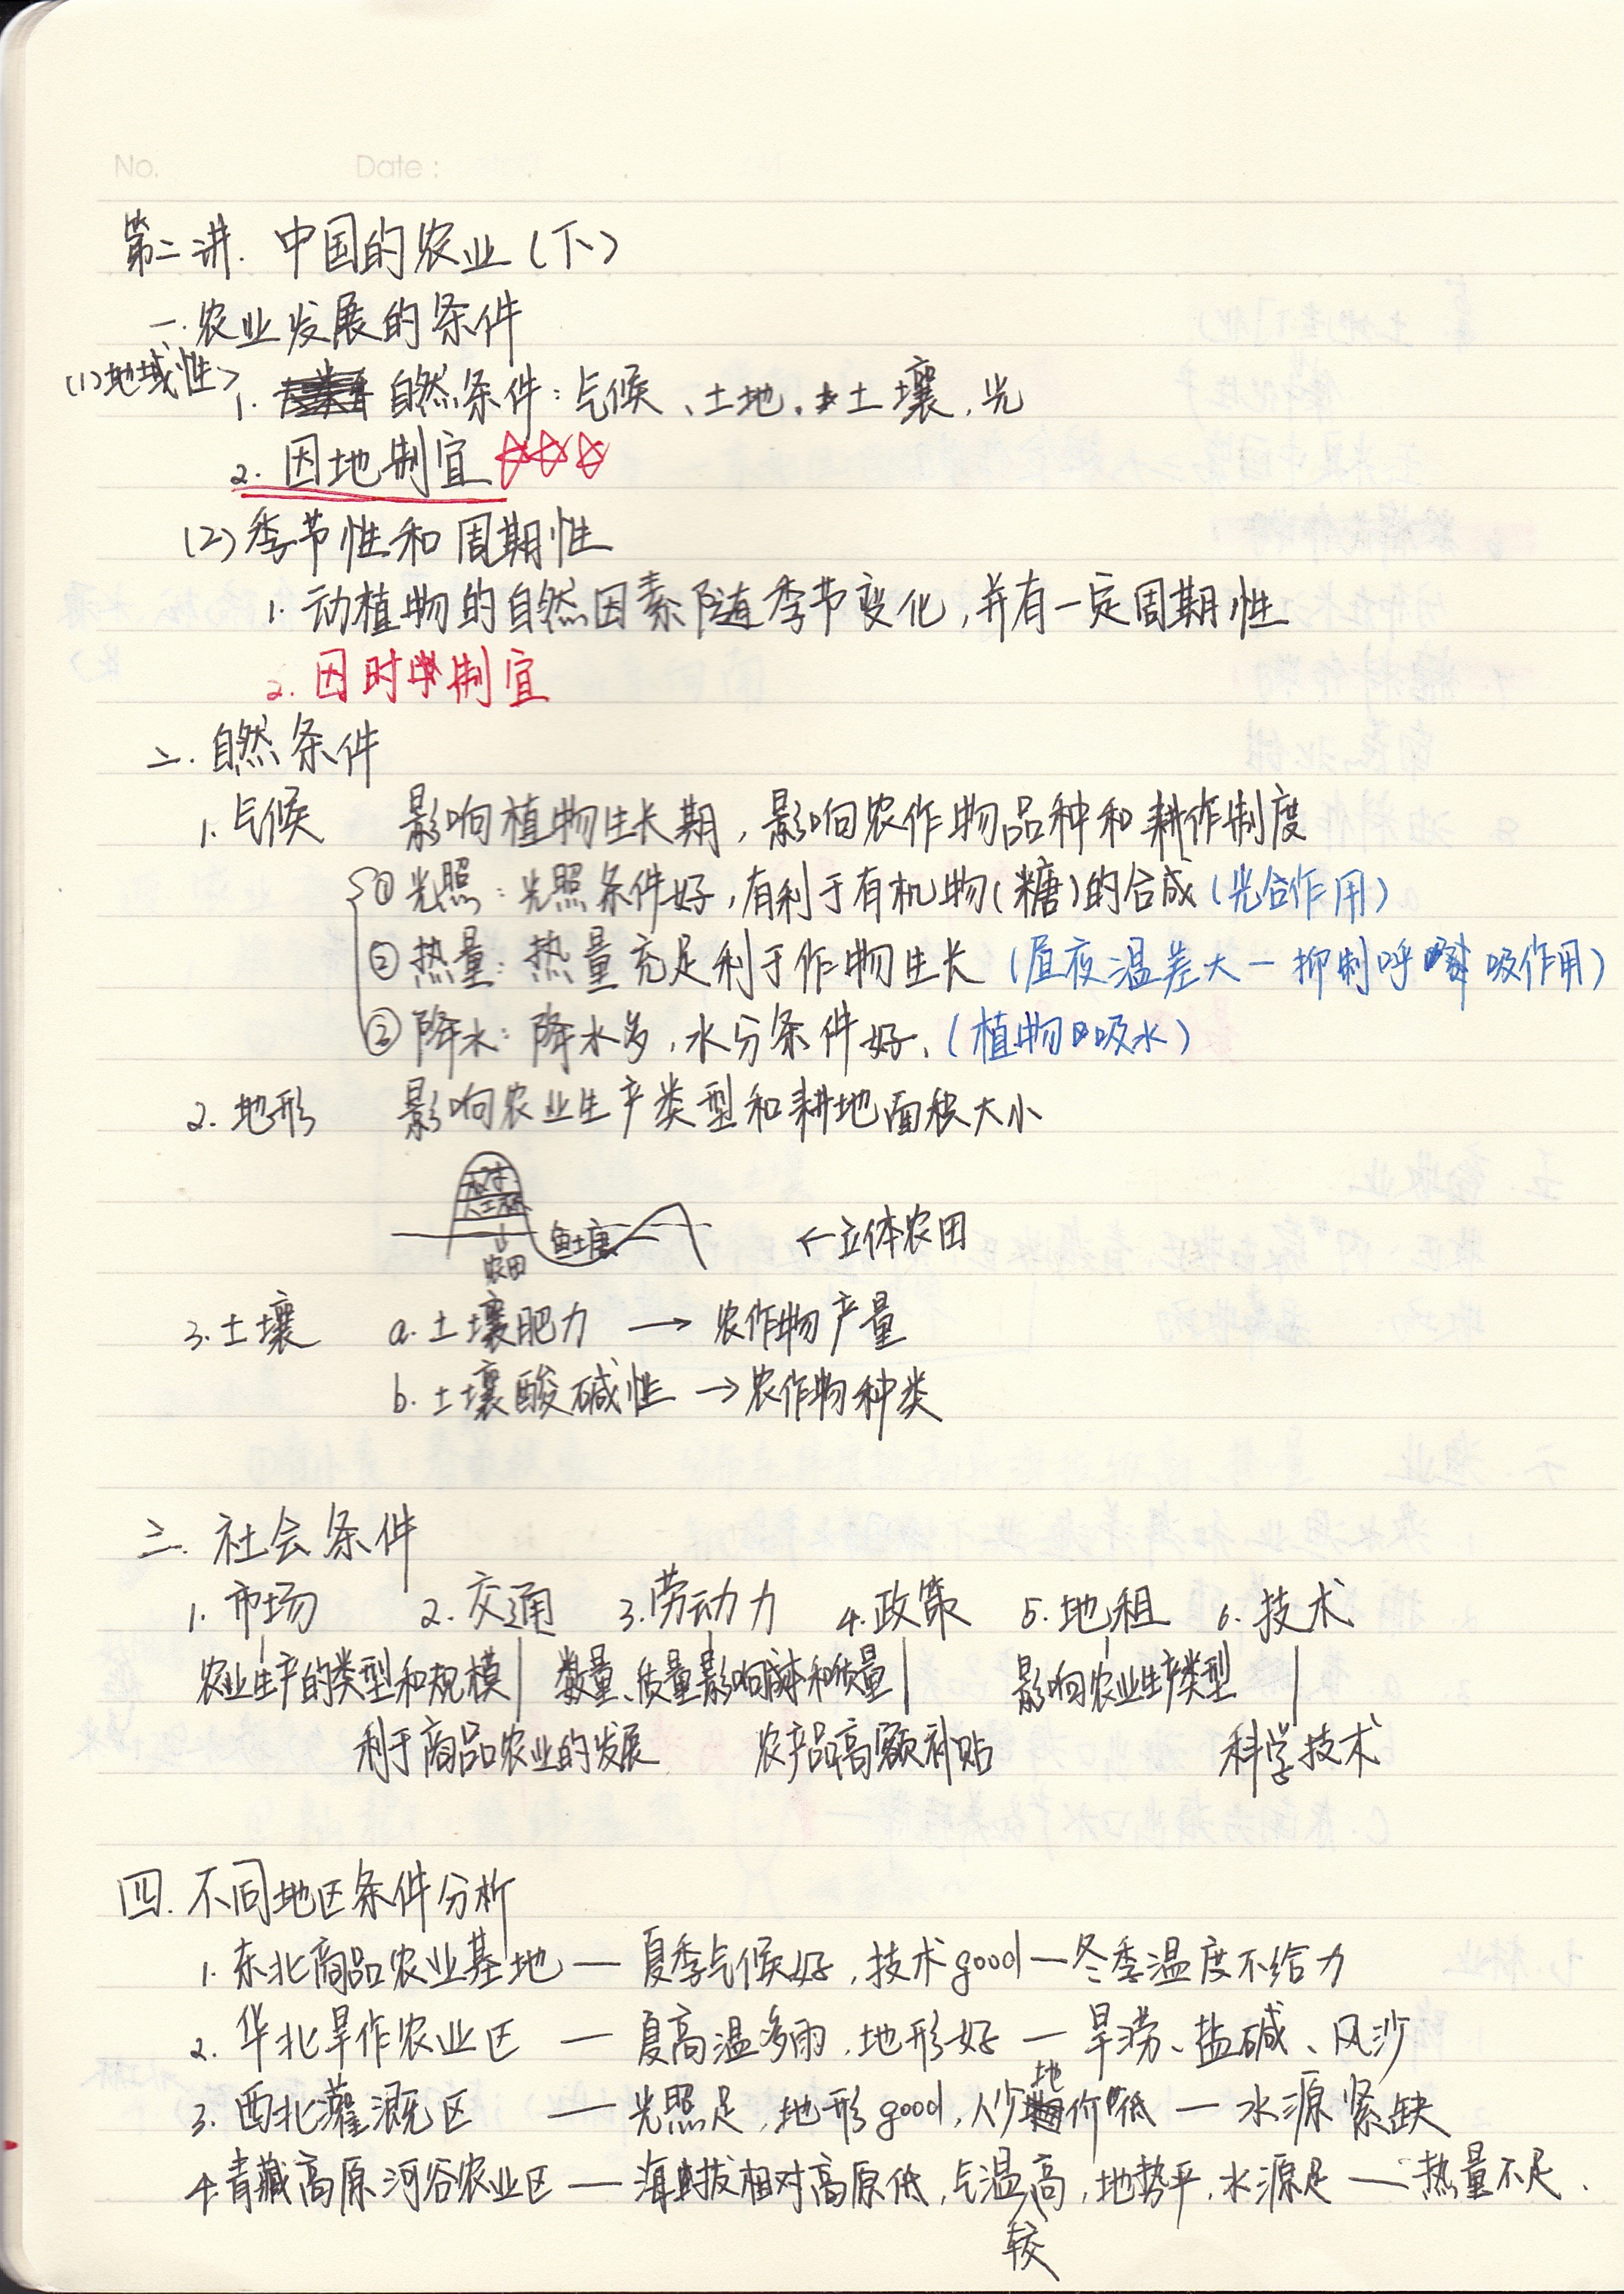 No. Date:
第二讲. 中国的农业(下)
一. 农业发展的条件
(1)地域性
1. 自然条件: 气候、土地、土壤、光
2. 因地制宜 ☆☆☆
(2)季节性和周期性
1. 动植物的自然因素随季节变化, 并有一定周期性
2. 因时制宜
二. 自然条件
1. 气候 影响植物生长期, 影响农作物品种和耕作制度
① 光照: 光照条件好, 有利于有机物(糖)的合成(光合作用)
② 热量: 热量充足利于作物生长 (昼夜温差大—抑制呼吸作用)
③ 降水: 降水多, 水分条件好、(植物吸水)
2. 地形 影响农业生产类型和耕地面积大小
农田
鱼塘
←立体农田
3. 土壤 a. 土壤肥力 → 农作物产量
b. 土壤酸碱性 → 农作物种类
三. 社会条件
1. 市场 2. 交通 3. 劳动力 4. 政策 5. 地租 6. 技术
农业生产的类型和规模 数量、质量影响成本和质量 影响农业生产类型
利于商品农业的发展 农产品高额补贴 科学技术
四. 不同地区条件分析
1. 东北商品农业基地 — 夏季气候好, 技术good — 冬季温度不给力
2. 华北旱作农业区 — 夏高温多雨, 地形好 — 旱涝、盐碱、风沙
3. 西北灌溉区 — 光照足, 地形good, 人少地价低 — 水源紧缺
4. 青藏高原河谷农业区 — 海拔相对高原低, 气温较高, 地势平, 水源足 — 热量不足.